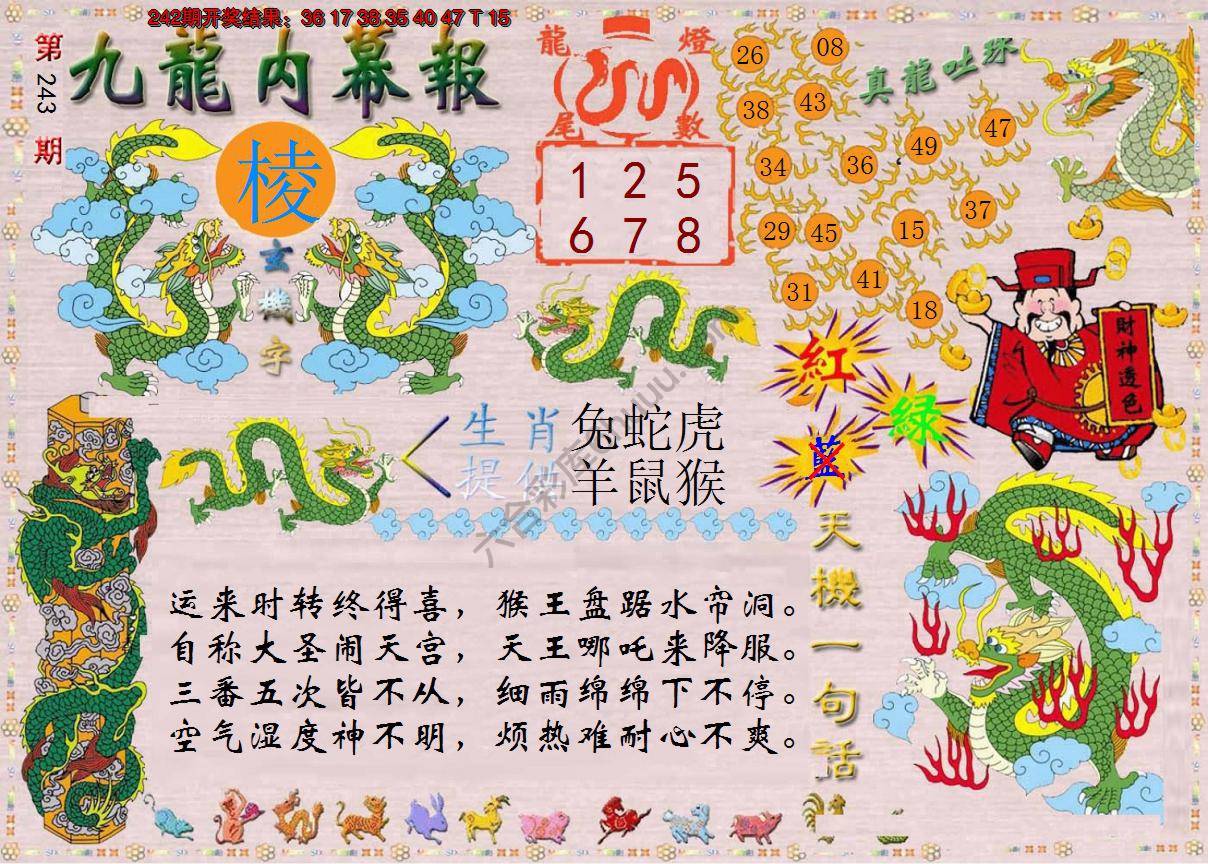 242期开奖结果：36 17 38 35 40 47 T 15
第243期
九龍内幕報
棱
玄機字
龍燈
尾數
1 2 5
6 7 8
真龍吐珠
26 08
38 43
34 36 49 47
29 45 15 37
31 41 18
財神透色
紅
綠
藍
生肖 兔蛇虎
提供 羊鼠猴
天機一句話
运来时转终得喜，猴王盘踞水帘洞。
自称大圣闹天宫，天王哪吒来降服。
三番五次皆不从，细雨绵绵下不停。
空气湿度神不明，烦热难耐心不爽。